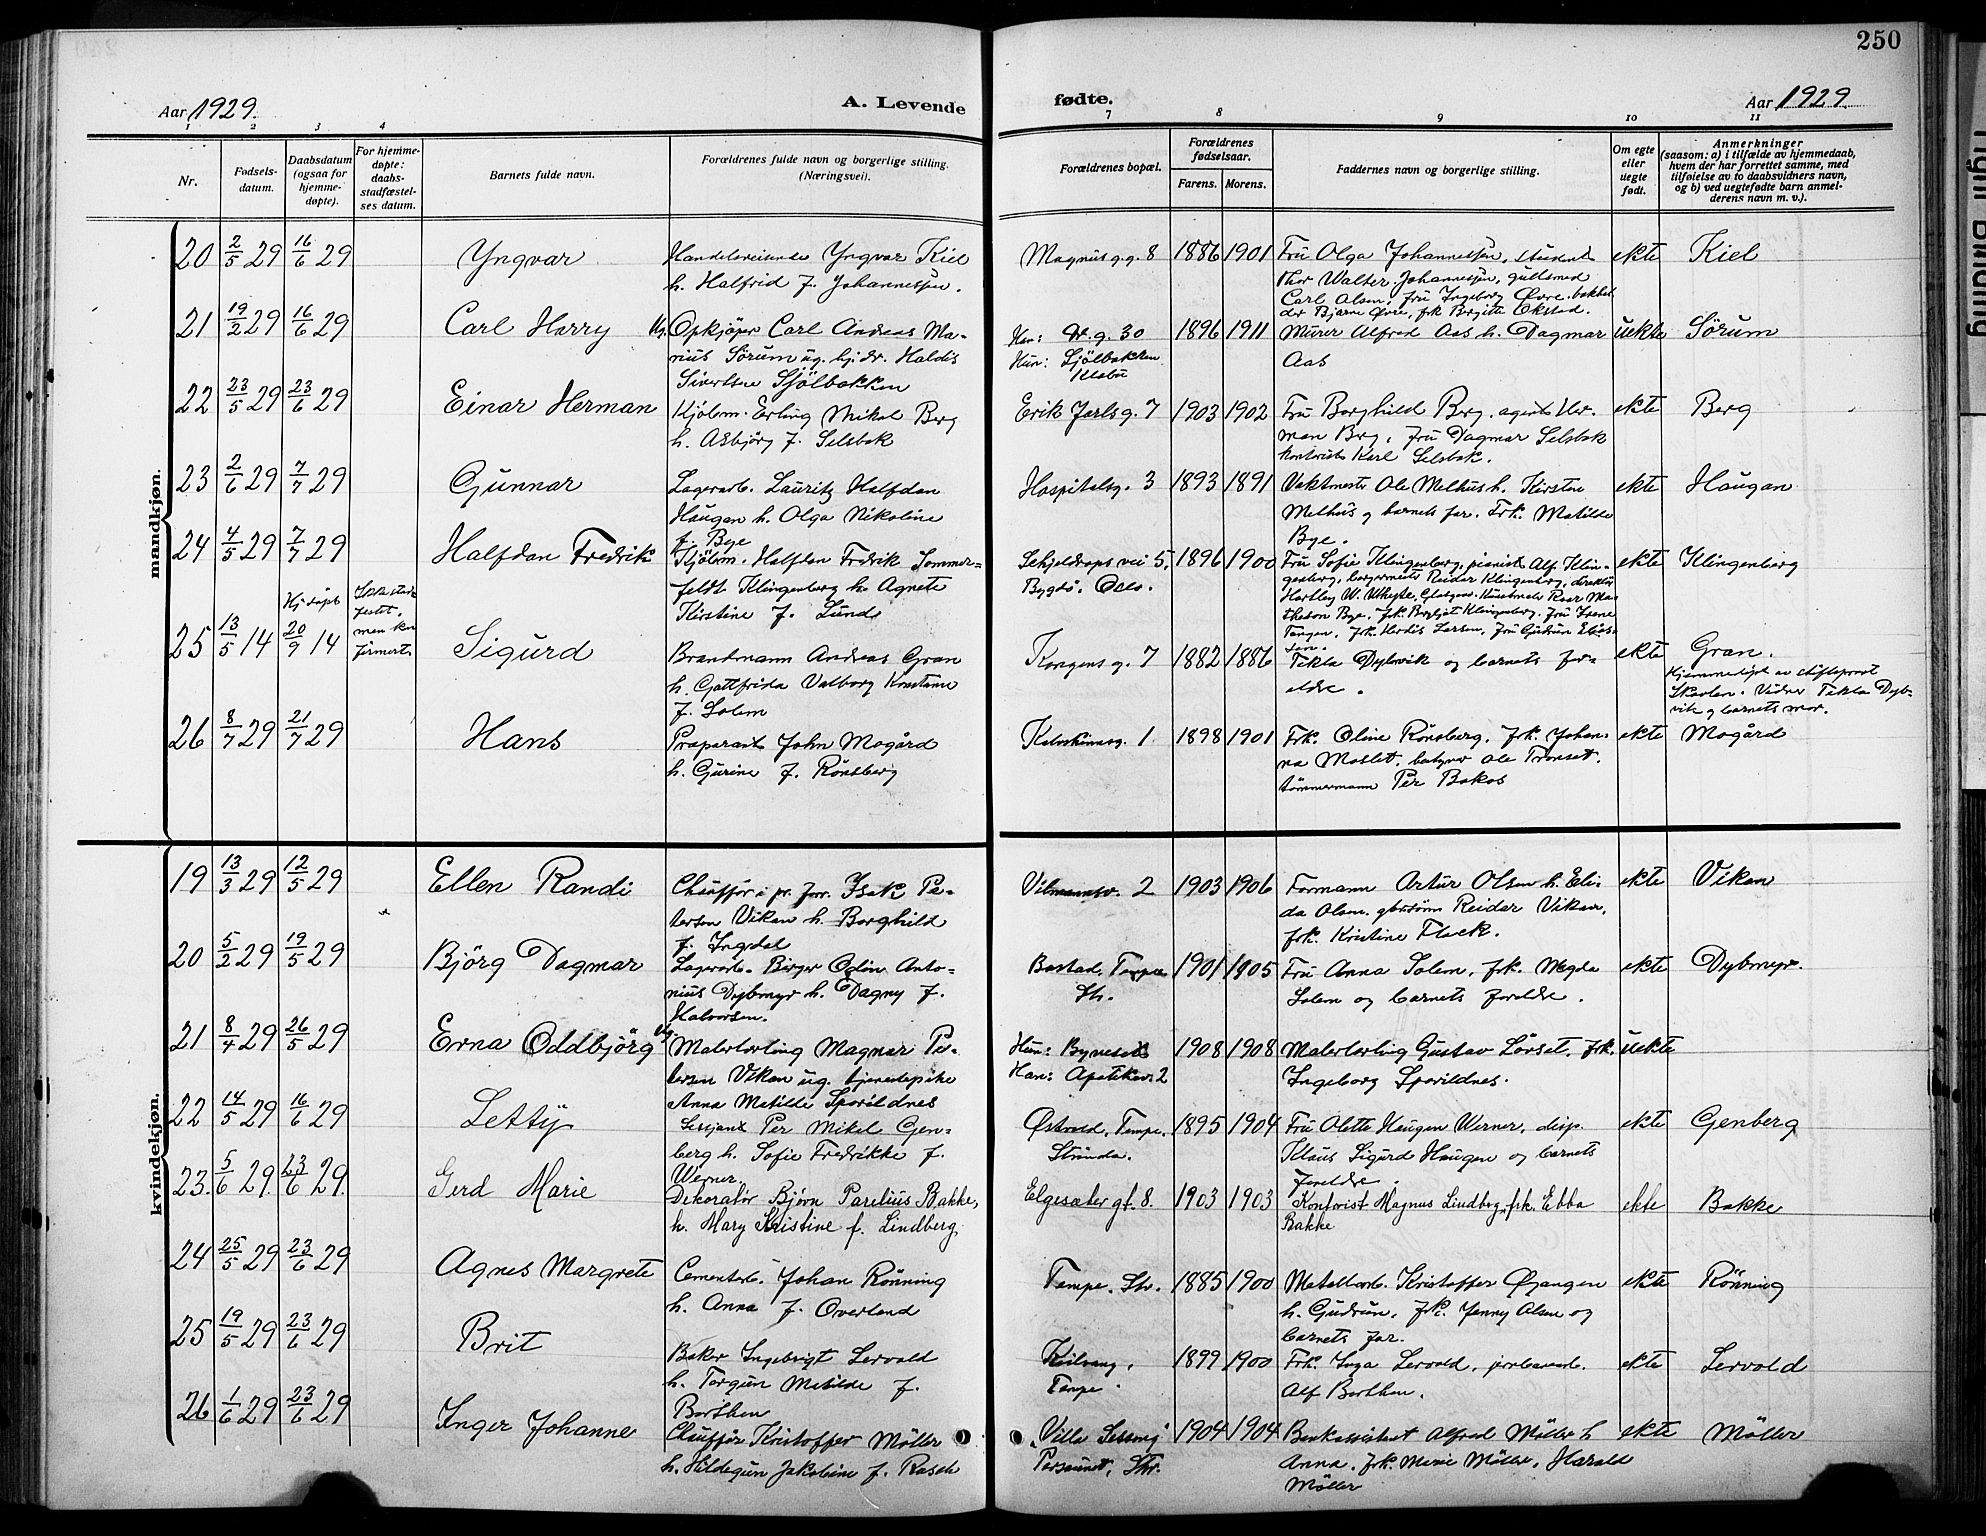 250
Aar 1929.
A. Levende fødte.
Aar 1929.
1 2 3 4 7 8 9 10 11
Nr.
Fødsels-
datum.
Daabsdatum
(ogsaa for
hjemme-
døpte).
For hjemme-
døpte:
daabs-
stadfæstel-
ses datum.
Barnets fulde navn.
Forældrenes fulde navn og borgerlige stilling.
(Næringsvei).
Forældrenes bopæl.
Forældrenes
fødselsaar.
Farens. Morens.
Faddernes navn og borgerlige stilling.
Om egte
eller
uegte
født.
Anmerkninger
(saasom: a) i tilfælde av hjemmedaab,
hvem der har forrettet samme, med
tilføielse av to daabsvidners navn,
og b) ved uegtefødte barn anmel-
derens navn m. v.).
mandkjøn.
20 2/5 29 16/6 29 Yngvar
Handelsreisende Yngvar Kiel
h. Halfrid f. Johannessen.
Magnus g. 8 1886 1901
Fru Olga Johannessen, student
Thor Walter Johannessen, gullsmed
Carl Olsen, fru Ingeborg Øvre, bokhol-
der Bjarne Øvre, frk Birgitte Ekstad.
ekte Kiel
21 19/2 29 16/6 29 Carl Harry Ug.
Opkjøper Carl Andreas Ma-
rius Sørum ug. hj. dr. Haldis
Sivertsen Sjölbakken
Han: Dr. g. 30
Hun: Sjölbakken
Klæbu
1896 1911
Murer Alfred Aas h. Dagmar
Aas
uekte Sörum
22 23/5 29 23/6 29 Einar Herman
Kjøbm. Erling Mikal Berg
h. Asbjörg f. Selsbak
Erik Jarlsg. 7 1903 1902
Fru Borghild Berg, agent Her-
man Berg, Fru Dagmar Selsbak
kontorist Karl Selsbak.
ekte Berg
23 2/6 29 7/7 29 Gunnar
Lagerarb. Lauritz Halfdan
Haugan h. Olga Nikoline
f. Bye
Hospitalsg. 3 1893 1891
Vaktmester Ole Melhus h. Kirsten
Melhus og barnets far. Frk. Matilde
Bye.
ekte Haugan
24 4/5 29 7/7 29 Halfdan Fredrik
Kjöbm. Halfdan Fredrik Sommer-
feldt Klingenberg h. Agnete
Kirstine f. Lund
Schjeldrops vei 5,
Bygdö. Oslo.
1896 1900
Fru Sofie Klingenberg, pianist Alf Klin-
genberg, borgermester Reidar Klingenberg, direktör
Hartley W. Whyte, Glasgow. Kunstmaler Roar Ma-
theson Bye, frk. Bergljot Klingenberg, Fru Irene
Tangen, frk. Herdis Larsen, Fru Gudrun Elias-
sen.
ekte Klingenberg
25 13/5 14 Hj. döpt 20/9 14
Ikke stad-
festet.
men kon-
firmert.
Sigurd
Brandmann Andreas Gran
h. Gottfrida Valborg Konstanse
f. Solem
Kongens g. 7 1882 1886
Tekla Dybvik og barnets for-
eldre.
ekte Gran.
Hjemmedöpt av stiftsprost
Skavlan. Vidner Tekla Dyb-
vik og barnets mor.
26 8/7 29 21/7 29 Hans
Præparant John Mogård
h. Gurine f. Rönsberg
Kalvskinnsg. 1 1898 1901
Frk. Oline Rönsberg, frk. Johan-
na Moslet, betjent Ole Tronset,
tömmermann Per Bakos
ekte Mogård
kvindekjøn.
19 13/3 29 12/5 29 Ellen Randi
Chauffør i pr. forr. Isak Pe-
tersen Viken h. Borghild
f. Ingdal
Vilmannsv. 2 1903 1906
Formann Artur Olsen h. Eli-
da Olsen, gbrsönn Reidar Viken,
frk. Kristine Flack.
ekte Viken
20 5/2 29 19/5 29 Björg Dagmar
Lagerarb. Birger Odin Anto-
nius Dybmyr h. Dagny f.
Halvorsen.
Bostad, Tempe
Str.
1901 1905
Fru Anna Solem, frk. Magda
Solem og barnets foreldre.
ekte Dybmyr.
21 8/4 29 26/5 29 Erna Oddbjörg Ug.
Malerlærling Magnar Pe-
tersen Viken ug. tjenestepike
Anna Matilde Sporildnes
Hun: Byneset
Han: Apotekerv. 2
1908 1908
Malerlærling Gustav Lörset, frk.
Ingeborg Sporildnes.
uekte
22 14/5 29 16/6 29 Letty
Sersjant Per Mikal Gen-
berg h. Sofie Fredrikke f.
Werner.
Østvold, Tempe,
Strinda.
1895 1904
Fru Olette Haugen Werner, disp.
Klaus Sigurd Haugen og barnets
foreldre.
ekte Genberg
23. 5/6 29. 23/6 29. Gerd Marie
Dekoratør Bjørn Parelius Bakke,
h. Mary Kristine f. Lindberg.
Elgesæter gt. 8. 1903 1903
Kontorist Magnus Lindberg, frk. Ebba
Bakke
ekte Bakke
24 25/5 29 23/6 29 Agnes Margrete
Cementarb. Johan Rönning
h. Anna f. Overland
Tempe. Str. 1885 1900
Metallarb. Kristoffer Øyangen
h. Gudrun, frk. Jenny Olsen og
barnets far.
ekte Rönning
25 19/5 29 23/6 29 Brit
Baker Ingebrigt Lervold
h. Torgun Matilde f.
Berthen
Tempe.
1899 1900
Frk. Inga Lervold,
Alf Berthen.
ekte Lervold
26 1/6 29 23/6 29 Inger Johanne
Chauffør Kristoffer Möller
h. Hildegun Jakobine f. Rasch
Villa
Persaunet, Str.
1904 1904
Bankassistent Alfred Möller h
Anna, frk. Marie Möller, Harald
Möller
ekte Möller